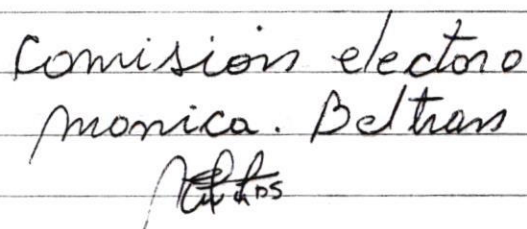 Comisión electoro
monica. Beltran